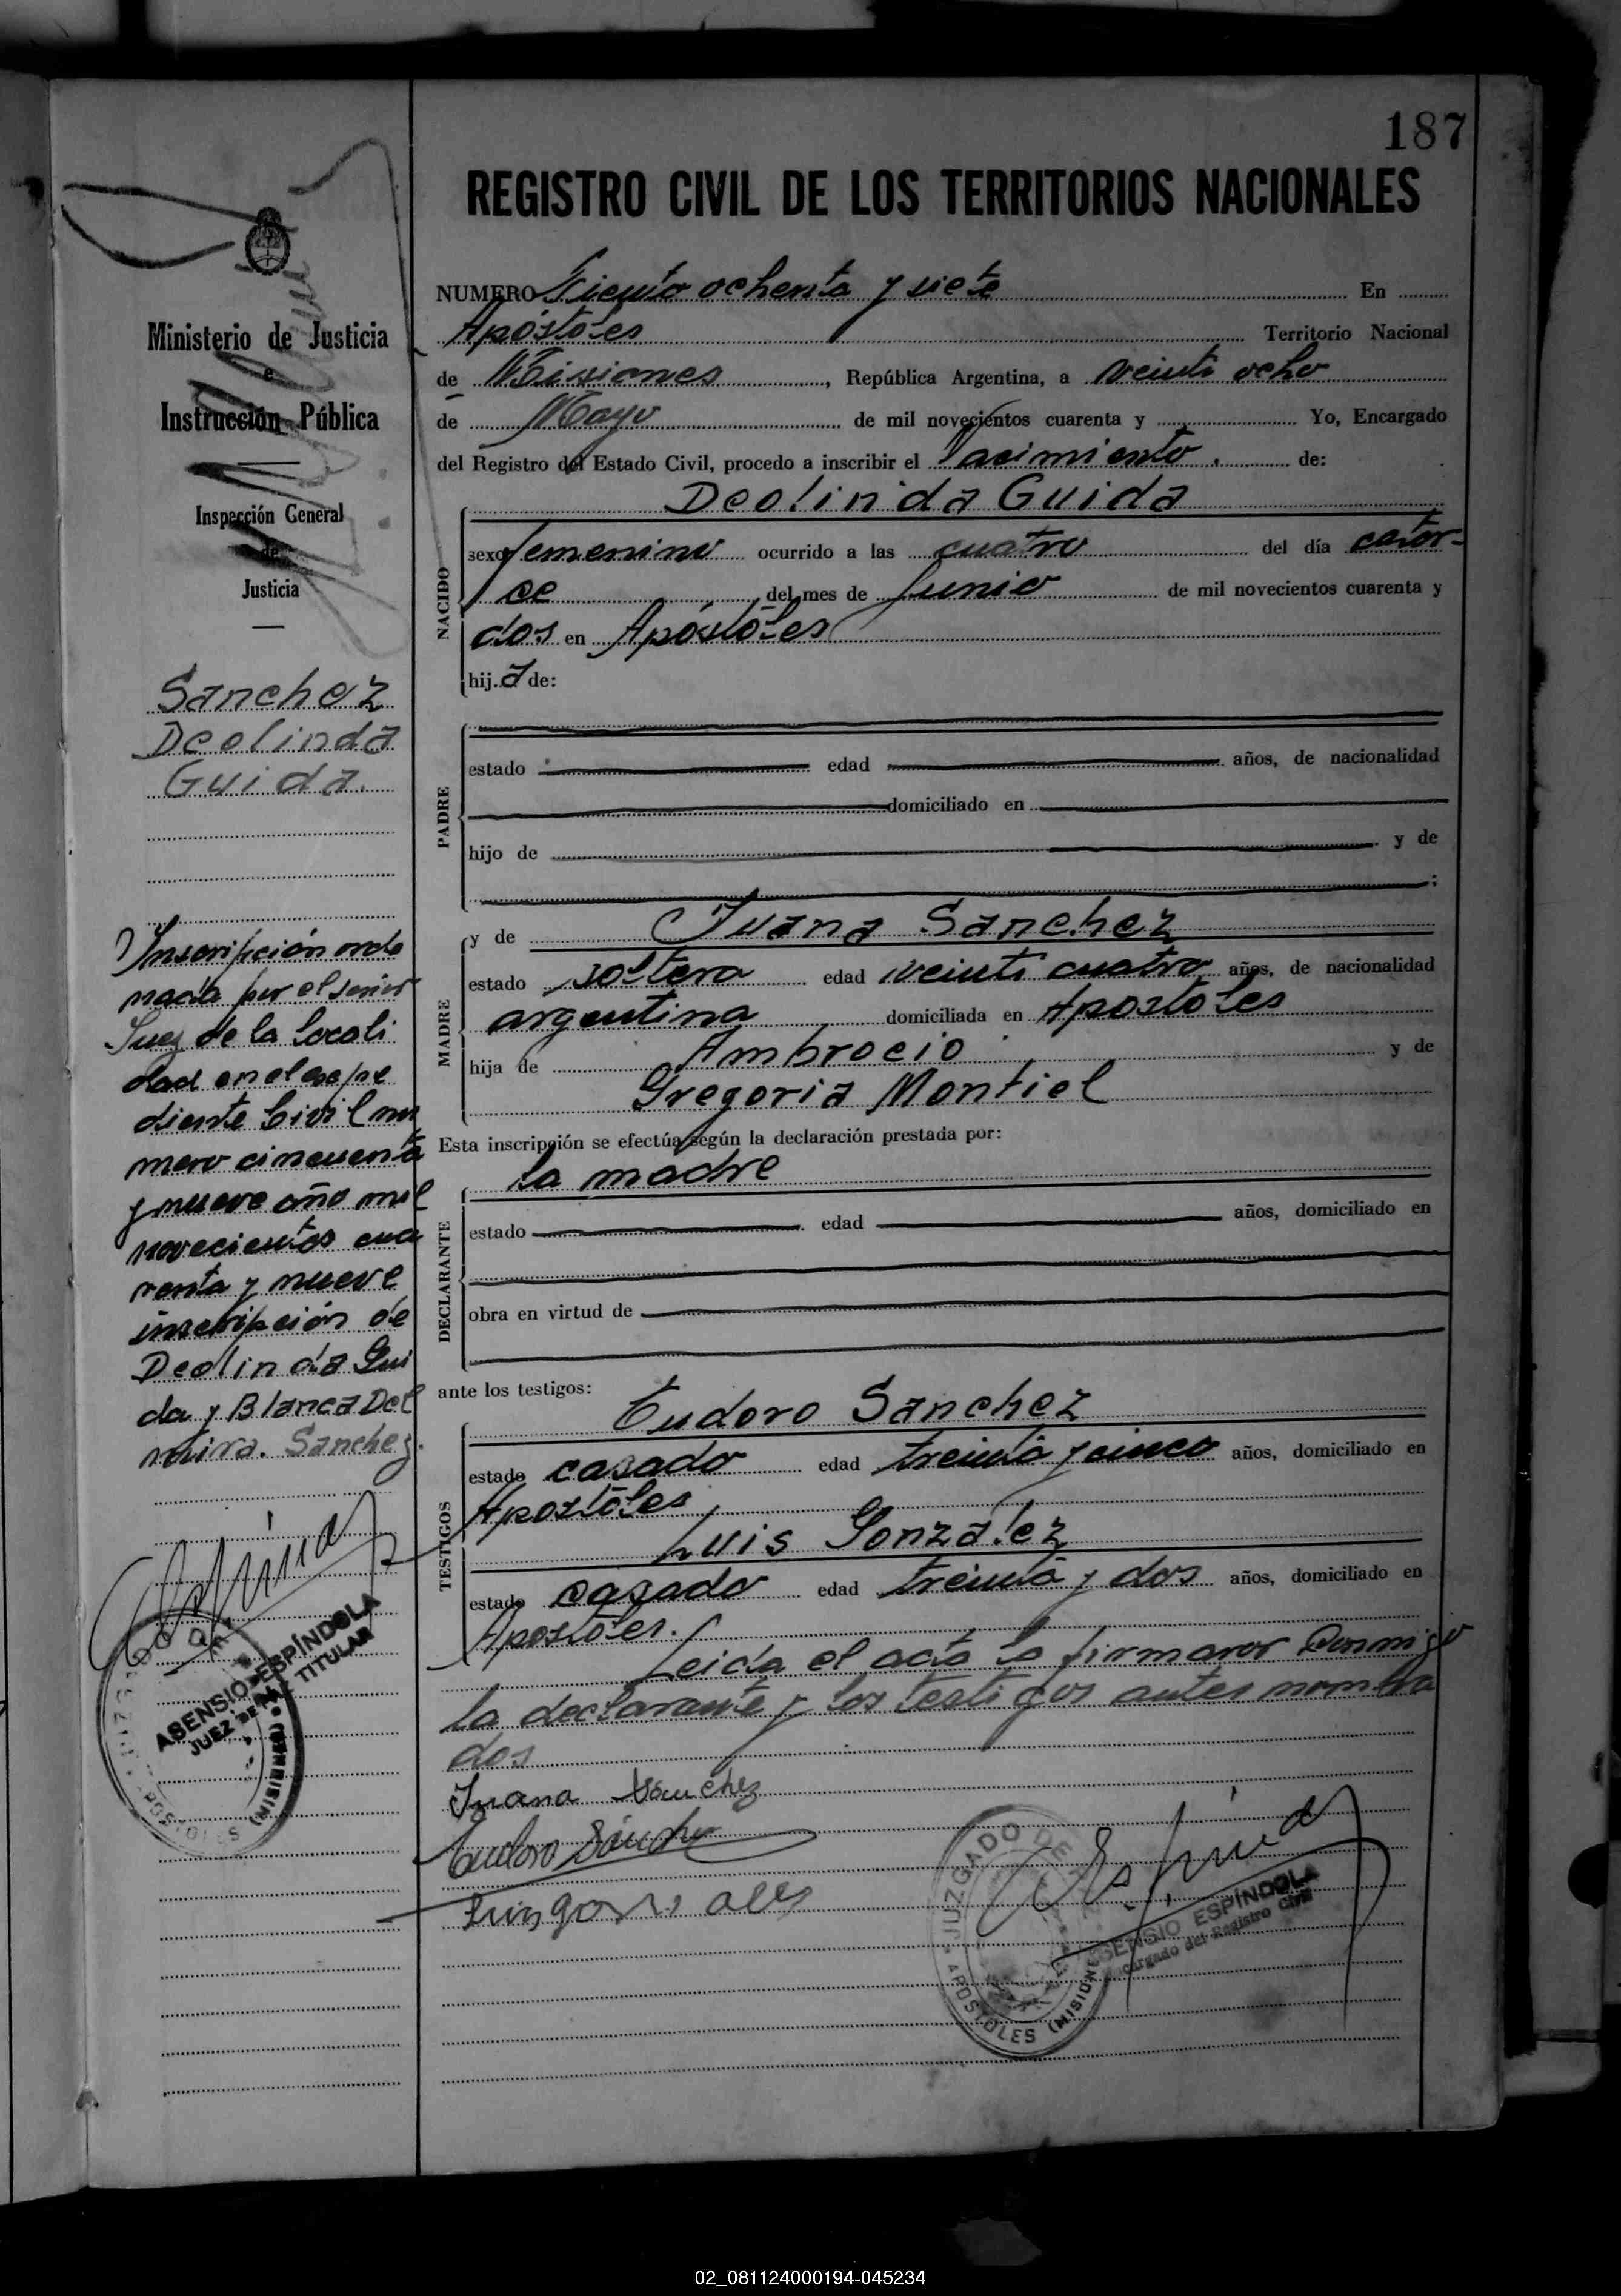 187
REGISTRO CIVIL DE LOS TERRITORIOS NACIONALES
NUMERO Ciento ochenta y siete En
Apóstoles Territorio Nacional
de Misiones, República Argentina, a veinti ocho
de Mayo de mil novecientos cuarenta y Yo, Encargado
del Registro del Estado Civil, procedo a inscribir el Nacimiento de:
NACIDO
Deolinda Guida
sexo femenino ocurrido a las cuatro del día cator-
ce del mes de Junio de mil novecientos cuarenta y
dos en Apóstoles
hij.a de:
PADRE
estado edad años, de nacionalidad
domiciliado en
hijo de y de
;
MADRE
y de Juana Sanchez
estado soltera edad veinti cuatro años, de nacionalidad
argentina domiciliada en Apóstoles
hija de Ambrocio y de
Gregoria Montiel
Esta inscripción se efectúa según la declaración prestada por:
DECLARANTE
la madre
estado edad años, domiciliado en
obra en virtud de
ante los testigos:
TESTIGOS
Eudoro Sanchez
estado casado edad treinta y cinco años, domiciliado en
Apostoles
Luis Gonzalez
estado casado edad treinta y dos años, domiciliado en
Apostoles.
Leida el acta la firmaron conmigo
la declarante y los testigos antes nombra
dos
Juana Sanchez
Eudoro Sánchez
Luis gonsales
JUZGADO DE
APOSTOLES (MISIONES)
ASENSIO ESPÍNDOLA
Encargado del Registro Civil
Ministerio de Justicia
e
Instrucción Pública
Inspección General
de
Justicia
Sanchez
Deolinda
Guida.
Inscripción orde
nada por el señor
Juez de la locali
dad en el expe
diente Civil nu
mero cincuenta
y nueve año mil
novecientos cua
renta y nueve
inscripción de
Deolinda Gui
da y Blanca Del
mira. Sanchez.
ASENSIO ESPÍNDOLA
JUEZ DE PAZ TITULAR
02_081124000194-045234